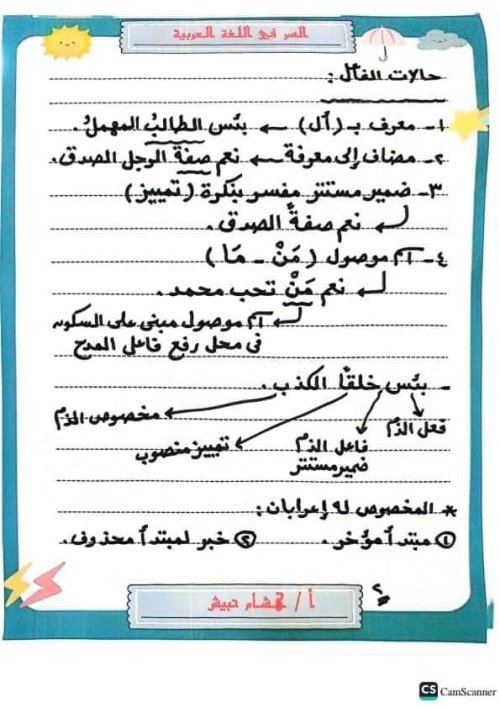 السر في اللغة العربية
حالات الفاعل :
١- معرف بـ (أل) ← بئس الطالبُ المهملُ.
٢- مضاف إلى معرفة ← نعم صفة الرجل الصدق.
٣- ضمير مستتر مفسر بنكرة (تمييز)
نعم صفةً الصدق.
٤- اسم موصول (مَنْ - مَا)
نعم مَنْ تحب محمد.
اسم موصول مبني على السكون
في محل رفع فاعل المدح
- بئس خلقًا الكذب.
فعل الذم
فاعل الذم
ضمير مستتر
تمييز منصوب
مخصوص الذم
* المخصوص له إعرابان :
① مبتدأ مؤخر. ② خبر لمبتدأ محذوف.
٢
أ / هشام حبيش
CS CamScanner